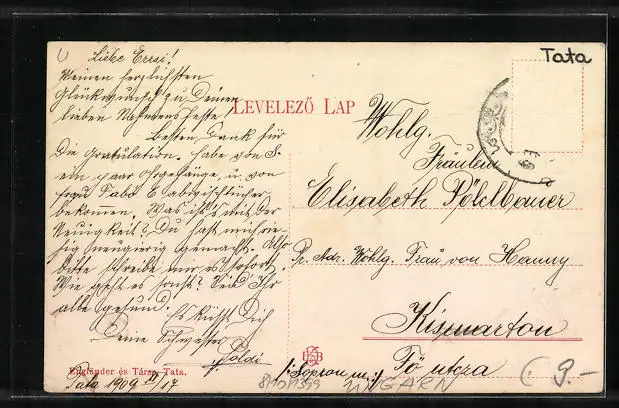 Liebe Erzsi!
Meinen herzlichsten
Glückwunsch zu Deinem
lieben Namensfeste.
Besten Dank für
die Gratulation. Habe von S.
ein paar
bekommen. Was ist's mit der
Neuigkeit? Du hast mich rie-
sig neugierig gemacht. Also
bitte schreibe mir sofort.
Wie geht es sonst? Seid Ihr
alle gesund.
Es küsst Dich
Deine Schwester
Poldi
Engländer és Társa, Tata.
Tata 1909 17
LEVELEZŐ LAP
Tata
Wohlg.
Fräulein
Elisabeth Pölclbauer
Pr. Adr. Wohlg. Frau von Hanny
Kismarton
Fő utcza
/: Sopron m. :/
UNGARN
9.-